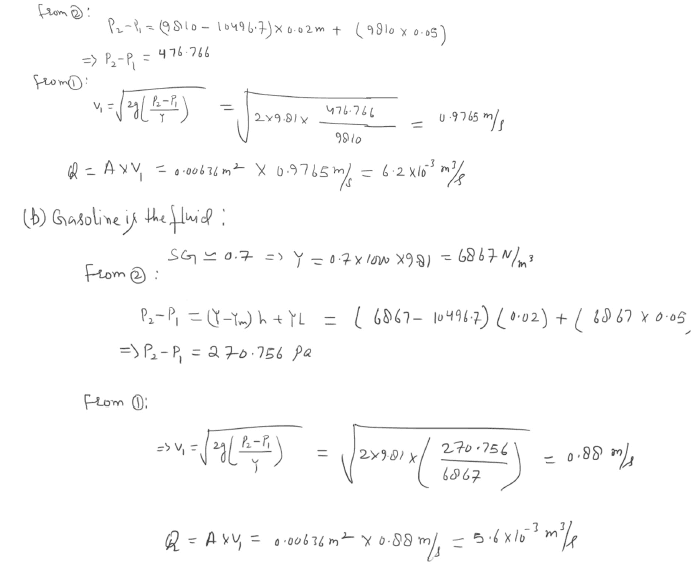 from②:
P₂-P₁ = (9810 - 10496.7) × 0.02m + (9810 × 0.05)
=> P₂-P₁ = 476.766
from①:
V₁ = √(2g((P₂-P₁)/γ)) = √(2×9.81× 476.766/9810) = 0.9765 m/s
Q = A×V₁ = 0.00636 m² × 0.9765 m/s = 6.2×10⁻³ m³/s
(b) Gasoline is the fluid:
SG ≃ 0.7 => γ = 0.7×1000×9.81 = 6867 N/m³
From②:
P₂-P₁ = (γ-γm)h + γL = (6867 - 10496.7)(0.02) + (6867 × 0.05
=> P₂-P₁ = 270.756 Pa
From ①:
=> V₁ = √(2g((P₂-P₁)/γ)) = √(2×9.81×(270.756/6867)) = 0.88 m/s
Q = A×V₁ = 0.00636 m² × 0.88 m/s = 5.6×10⁻³ m³/s